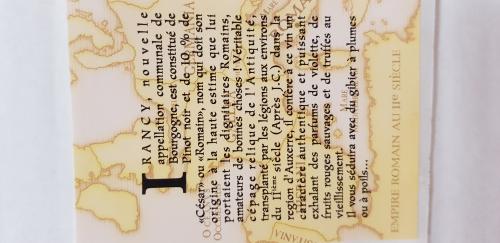 IRANCY, nouvelle
appellation communale de
Bourgogne, est constitué de
Pinot noir et de 10 % de
«César» ou «Romain», nom qui doit son
origine à la haute estime que lui
portaient les dignitaires Romains,
amateurs de bonnes choses ! Véritable
cépage relique de l'Antiquité,
transplanté par les légions aux environs
du IIième siècle (Après J.C.) dans la
région d'Auxerre, il confère à ce vin un
caractère authentique et puissant
exhalant des parfums de violette, de
fruits rouges sauvages et de truffes au
vieillissement.
Il vous séduira avec du gibier à plumes
ou à poils...
EMPIRE ROMAIN AU IIe SIÈCLE